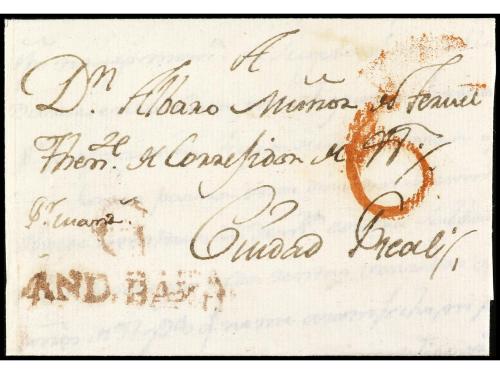 A
Dn. Albaro Muñoz d Teruel
Thente. de Correfidor de
Ciudad Real
AND. BAXA
6